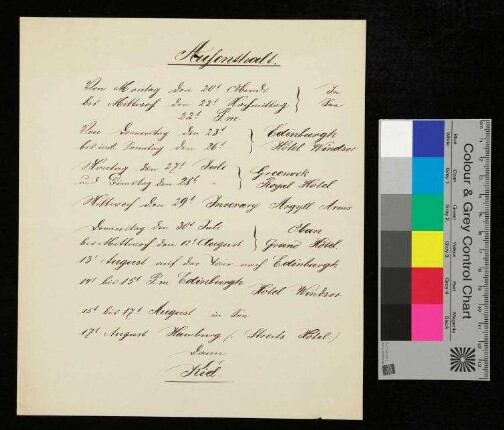 Aufenthalt.
Von Montag den 20t Abends } In
bis Mittwoch den 22t Nachmittag } See
22t Pm
Von Donnerstag den 23t } Edinburgh
bis incl. Sonntag den 26t } Hôtel Windsor
Montag den 27t Juli } Greenock
und Dienstag den 28t " } Royal Hôtel
Mittwoch den 29t Inverary Argyll Arms
Donnerstag den 30t Juli } Oban
bis Mittwoch den 12t August } Grand Hôtel
13t August auf der Tour nach Edinburgh
14t bis 15t Pm Edinburgh
Hôtel Windsor
15t bis 17t August in See
17t August Hamburg (Streits Hôtel)
Dann
Kiel.
Colour & Grey Control Chart
White
Grey 1
Grey 2
Grey 3
Grey 4
Black
Blue
Cyan
Green
Yellow
Red
Magenta